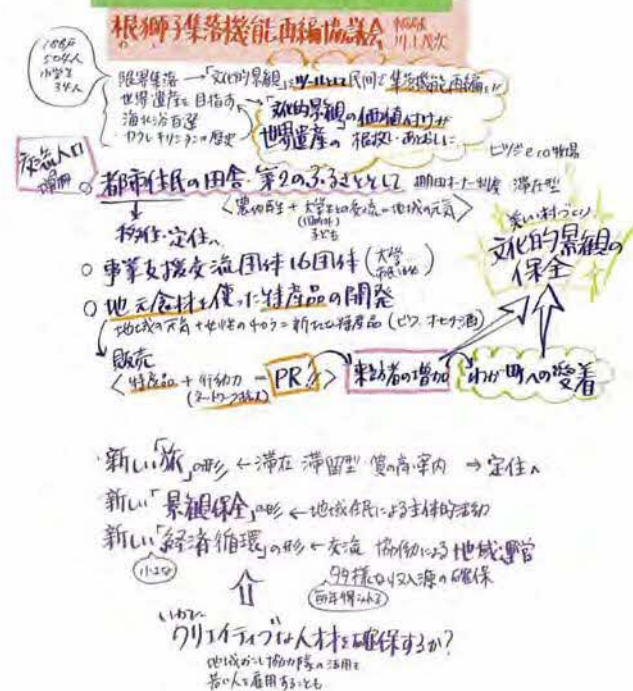 根獅子集落機能再編協議会
川上茂次
188戸
504人
小学生
34人
限界集落 → 「文化的景観」をツールとして民間で集落機能再編を!!
世界遺産を目指す
海北谷百選
カクレキリシタンの歴史
「文化的景観」の価値付けが
世界遺産の 根拠し・あとおしに
ヒツジeco牧場
交流人口
増
○ 都市住民の田舎・第2のふるさととして 棚田オーナー制度 滞在型
<農地再生 + 大学生との交流 = 地域の元気>
子ども
移住・定住へ
○ 事業支援交流団体16団体 (大学
○ 地元食材を使った特産品の開発
地域の元気 + 女性のチカラ = 新たな特産品
販売
<特産品 + 行動力 = PR!!>
(ネットワーク拡大)
来訪者の増加
わが町への愛着
美しい村づくり
文化的景観の
保全
・新しい「旅」の形 ← 滞在 滞留型 質の高い案内 → 定住へ
新しい「景観保全」の形 ← 地域住民による主体的活動
新しい「経済循環」の形 ← 交流 協働による地域運営
小さな
多様な収入源の確保
毎年得られる
いかに
クリエイティブな人材を確保するか?
地域おこし協力隊の活用を
若い人を雇用することも